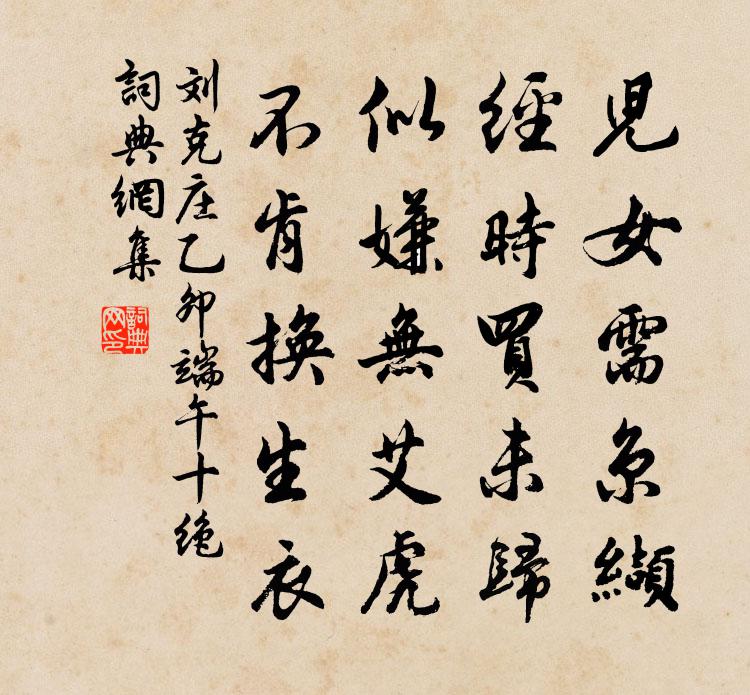 児女需糸纈
經時買未歸
似嫌無艾虎
不肯換生衣
刘克庄乙卯端午十絶
詞典網集
詞典
网印